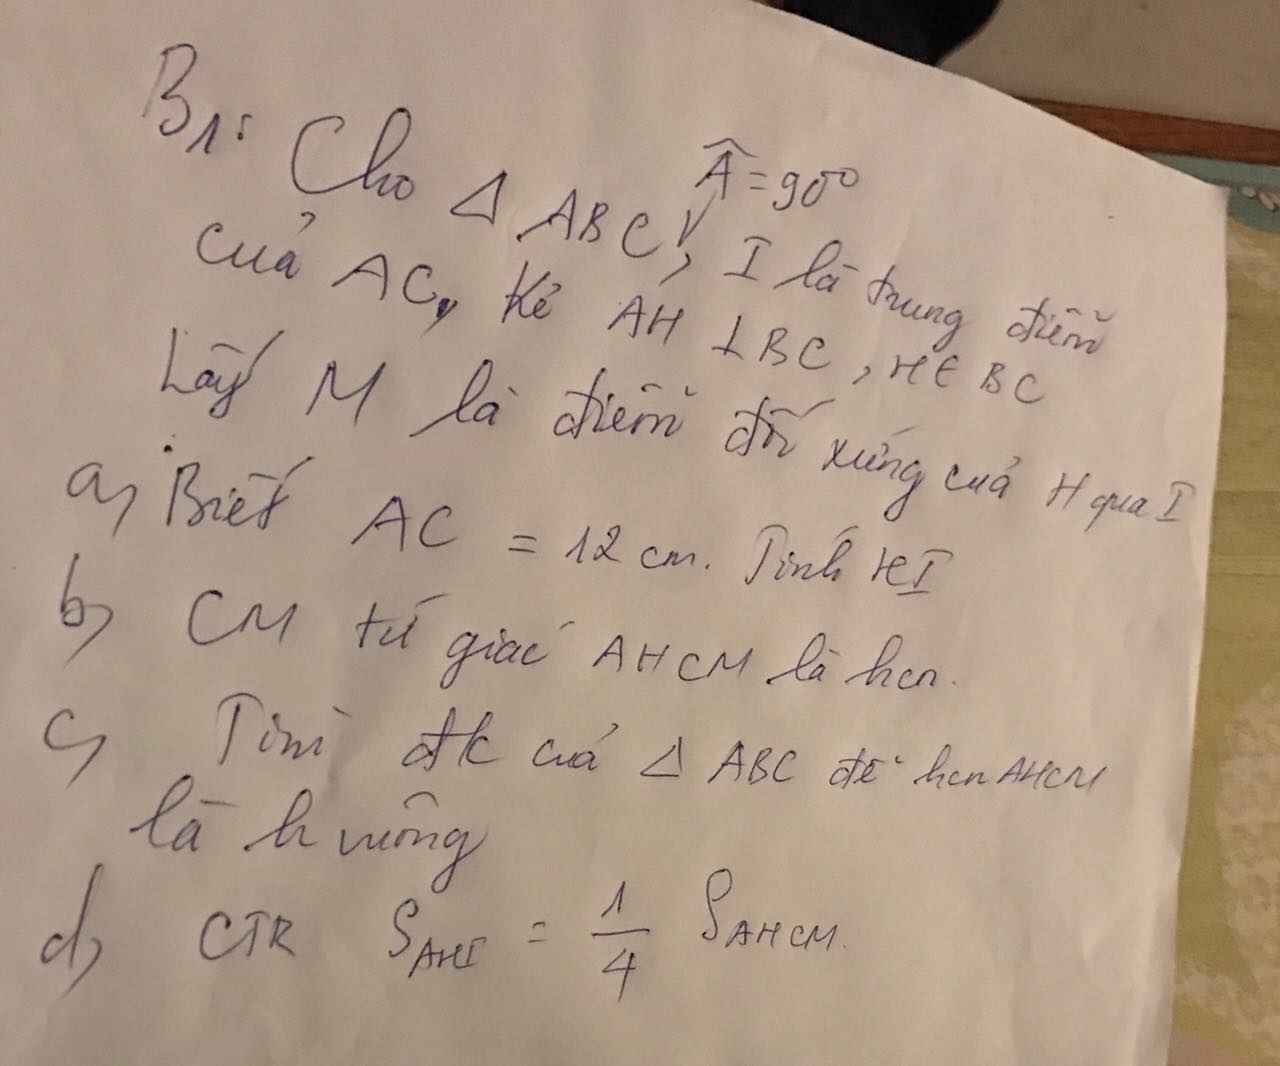 B1: Cho Δ ABC, Â = 90°, I là trung điểm
của AC, Kẻ AH ⊥ BC, H ∈ BC
Lấy M là điểm đối xứng của H qua I
a, Biết AC = 12 cm. Tính HI
b, CM tứ giác AHCM là hcn.
c, Tìm đk của Δ ABC để hcn AHCM
là h vuông
d, CTR S_AHI = 1/4 S_AHCM.